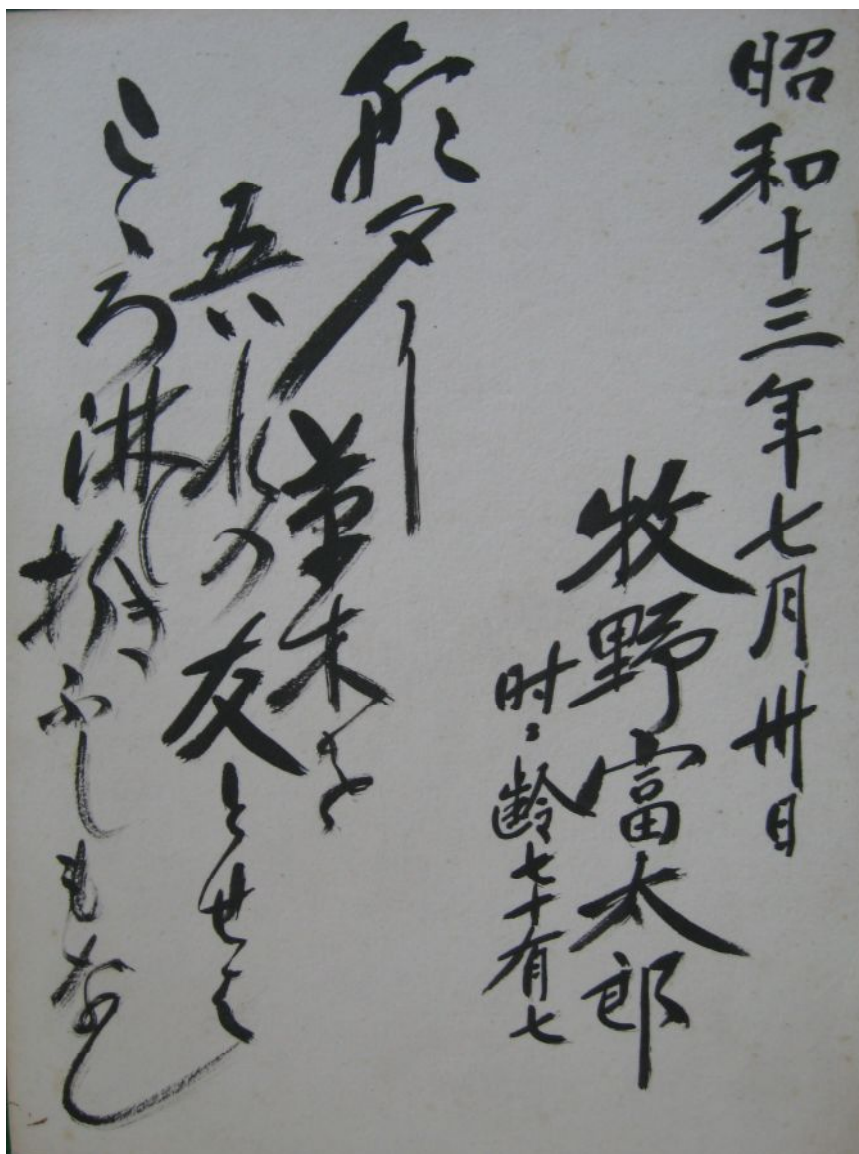 昭和十三年七月卅日
牧野富太郎
时ニ齢七十有七
朝夕に草木を
吾れの友とせは
こゝろ淋しき折ふしもなし